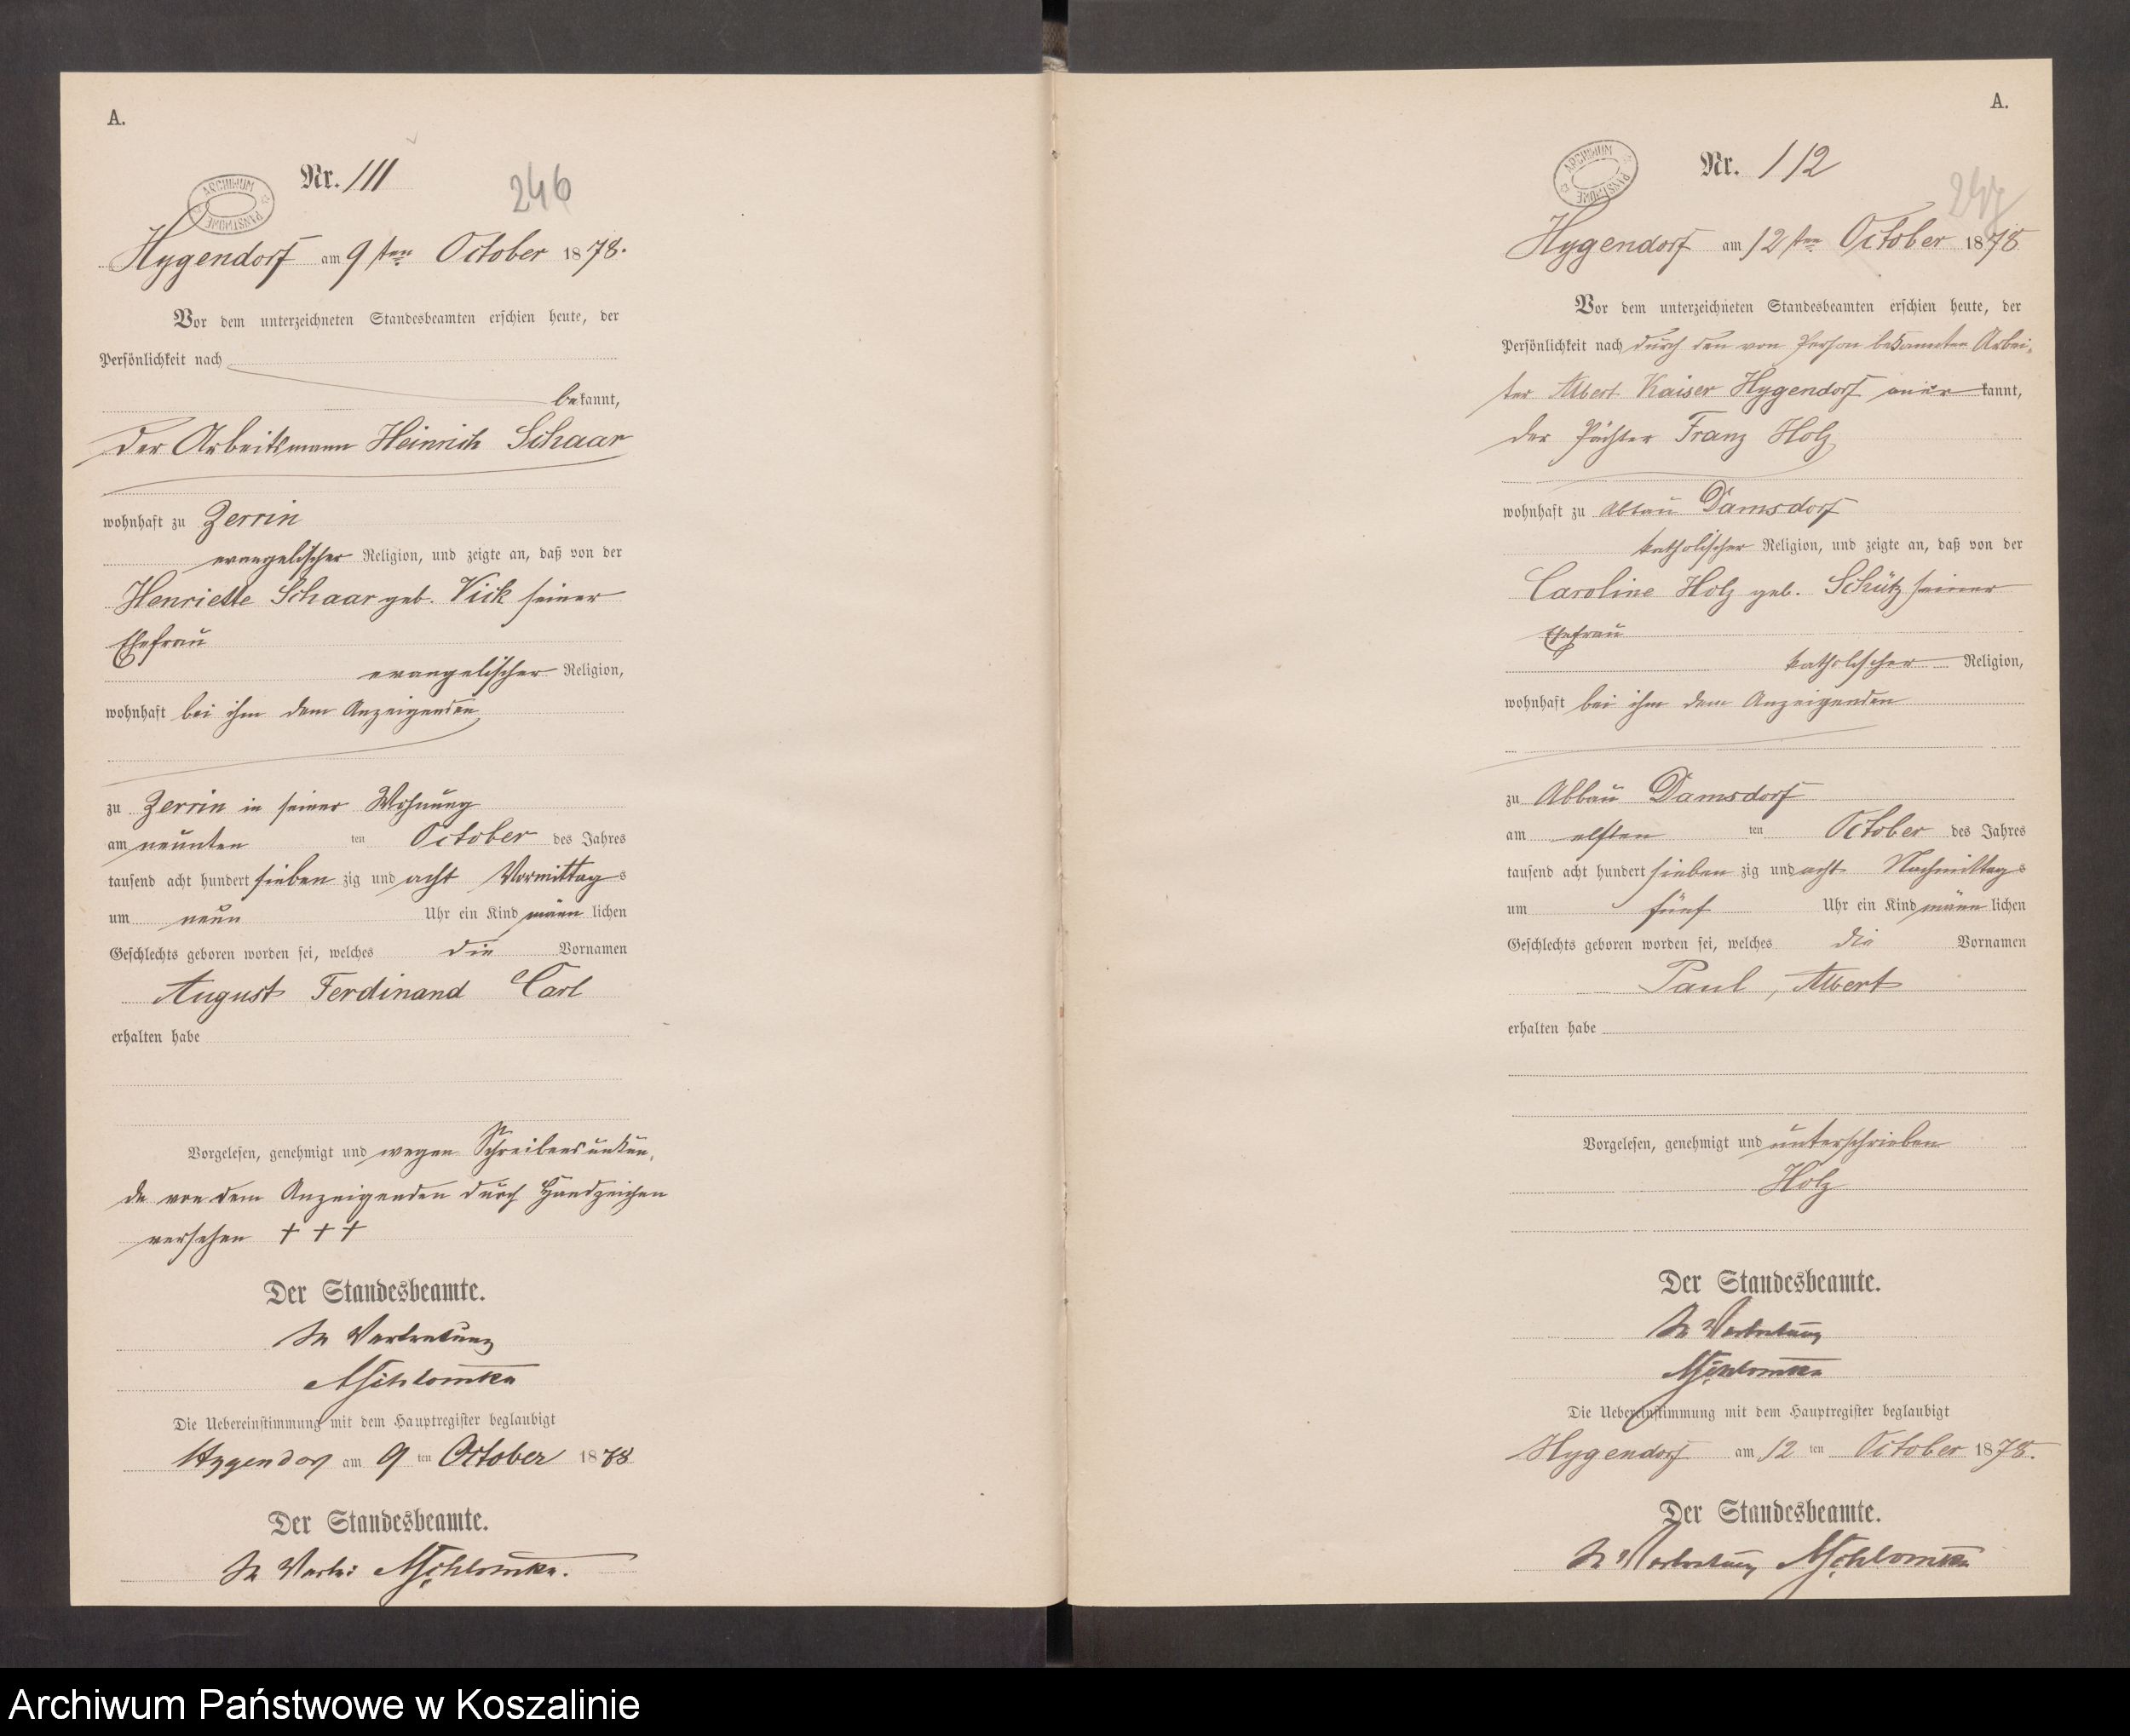 A.
Nr. 111
246
ARCHIWUM PAŃSTWOWE
Hygendorf am 9ten October 1878.
Vor dem unterzeichneten Standesbeamten erschien heute, der
Persönlichkeit nach
bekannt,
der Arbeitsmann Heinrich Schaar
wohnhaft zu Zerrin
evangelischer Religion, und zeigte an, daß von der
Henriette Schaar geb. Vick seiner
Ehefrau
evangelischer Religion,
wohnhaft bei ihm dem Anzeigenden
zu Zerrin in seiner Wohnung
am neunten ten October des Jahres
tausend acht hundert sieben zig und acht Vormittags
um neun Uhr ein Kind männlichen
Geschlechts geboren worden sei, welches die Vornamen
August Ferdinand Carl
erhalten habe
Vorgelesen, genehmigt und wegen Schreibensunkun-
de von dem Anzeigenden durch Handzeichen
versehen + + +
Der Standesbeamte.
In Vertretung
Die Uebereinstimmung mit dem Hauptregister beglaubigt
Hygendorf am 9 ten October 1878
Der Standesbeamte.
In Vertr:
A.
Nr. 112
247
ARCHIWUM PAŃSTWOWE
Hygendorf am 12ten October 1878
Vor dem unterzeichneten Standesbeamten erschien heute, der
Persönlichkeit nach durch den von Person bekannten Arbei-
ter Albert Kaiser Hygendorf kannt,
der Pächter Franz Holz
wohnhaft zu Abbau Damsdorf
katholischer Religion, und zeigte an, daß von der
Caroline Holz geb. Schütz seiner
Ehefrau
katholischer Religion,
wohnhaft bei ihm dem Anzeigenden
zu Abbau Damsdorf
am elften ten October des Jahres
tausend acht hundert sieben zig und acht Nachmittags
um fünf Uhr ein Kind männlichen
Geschlechts geboren worden sei, welches die Vornamen
Paul, Albert
erhalten habe
Vorgelesen, genehmigt und unterschrieben
Holz
Der Standesbeamte.
In Vertretung
Die Uebereinstimmung mit dem Hauptregister beglaubigt
Hygendorf am 12 ten October 1878.
Der Standesbeamte.
In Vertretung
Archiwum Państwowe w Koszalinie